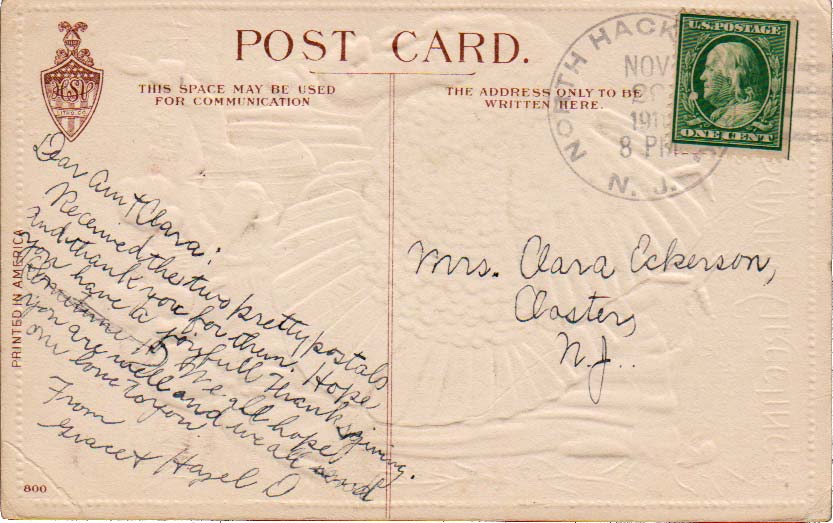 POST CARD.
THIS SPACE MAY BE USED
FOR COMMUNICATION
THE ADDRESS ONLY TO BE
WRITTEN HERE.
LITHO. CO.
NORTH HACK
NOV
191
8 PM
N. J.
U.S. POSTAGE
ONE CENT
Dear Aunt Clara:
Received the two pretty postals
and thank you for them. Hope
you have a joyfull Thanksgiving.
We all hope
you are well and we all send
our love to you
From
Grace & Hazel D
Mrs. Clara Eckerson,
Closter,
N.J..
PRINTED IN AMERICA
800